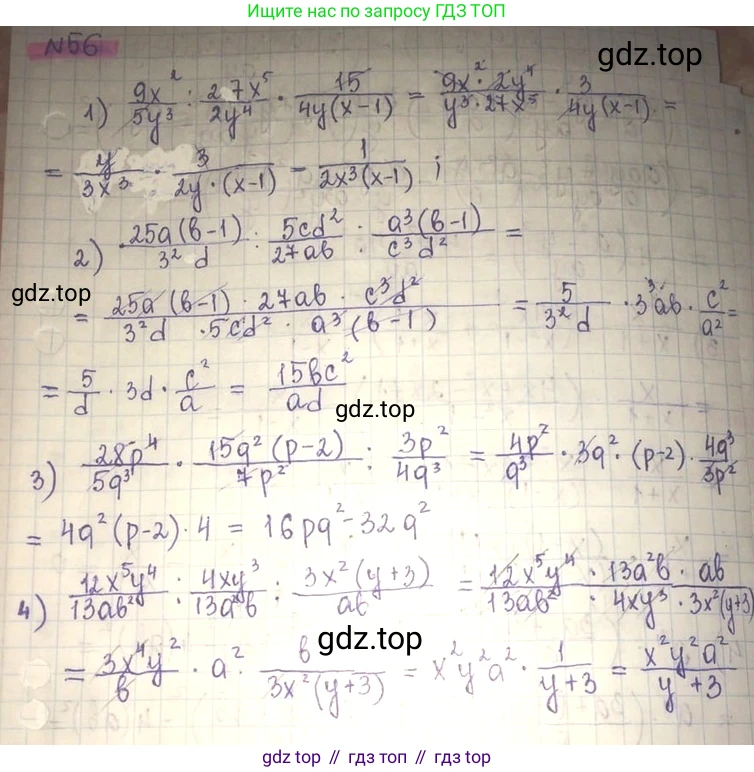 Ищите нас по запросу ГДЗ ТОП
N56
gdz.top
1) 9x²/5y³ : 27x⁵/2y⁴ · 15/4y(x-1) = 9x²·2y⁴/y³·27x⁵ · 3/4y(x-1) =
= y/3x³ · 3/2y·(x-1) = 1/2x³(x-1) ;
2) 25a(b-1)/3²d : 5cd²/27ab : a³(b-1)/c³d² =
gdz.top
= 25a(b-1)·27ab·c³d²/3²d·5cd²·a³(b-1) = 5/3²d · 3³ab · c²/a² =
= 5/d · 3d · c²/a = 15bc²/ad
gdz.top
3) 28p⁴/5q³ · 15q²(p-2)/7p² : 3p²/4q³ = 4p²/q³ · 3q² · (p-2) · 4q³/3p²
= 4q²(p-2)·4 = 16pq²-32q²
gdz.top
4) 12x⁵y⁴/13ab² : 4xy³/13a²b : 3x²(y+3)/ab = 12x⁵y⁴·13a²b·ab/13ab²·4xy³·3x²(y+3)
gdz.top
= 3x⁴y²/b · a² · b/3x²(y+3) = x²y²a² · 1/y+3 = x²y²a²/y+3
gdz.top // гдз топ // gdz.top